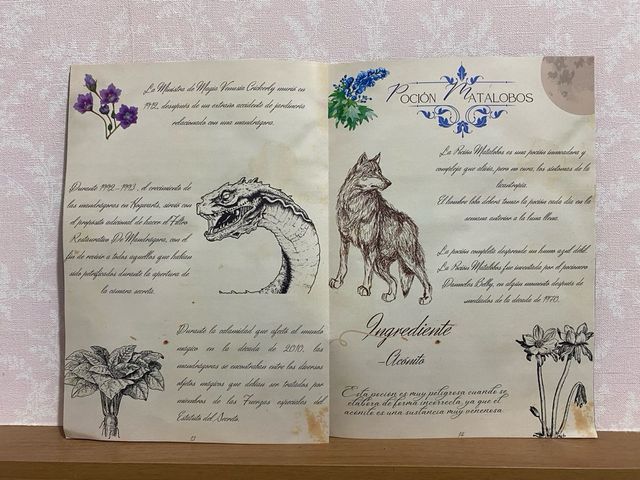 La Ministra de Magia Venusia Crickerly murió en
1912, despúes de un extraño accidente de jardinería
relacionado con una mandrágora.
Durante 1992 - 1993, el crecimiento de
las mandrágoras en Hogwarts, sirvió con
el propósito adicional de hacer el Filtro
Restaurativo De Mandrágora, con el
fin de revivir a todos aquellos que habían
sido petrificados durante la apertura de
la cámara secreta.
Durante la calamidad que afectó al mundo
mágico en la década de 2010, las
mandrágoras se encontraban entre los diversos
objetos mágicos que debían ser tratados por
miembros de las Fuerzas especiales del
Estatuto del Secreto.
13
Poción Matalobos
La Poción Matalobos es una poción innovadora y
compleja que alivia, pero no cura, los síntomas de la
licantropía.
El hombre lobo deberá tomar la poción cada día en la
semana anterior a la luna llena.
La poción completa desprende un humo azul débil.
La Poción Matalobos fue inventada por el pocionero
Damocles Belby, en algún momento después de
mediados de la década de 1970.
Ingrediente
-Acónito
Esta poción es muy peligrosa cuando se
elabora de forma incorrecta, ya que el
acónito es una sustancia muy venenosa.
14